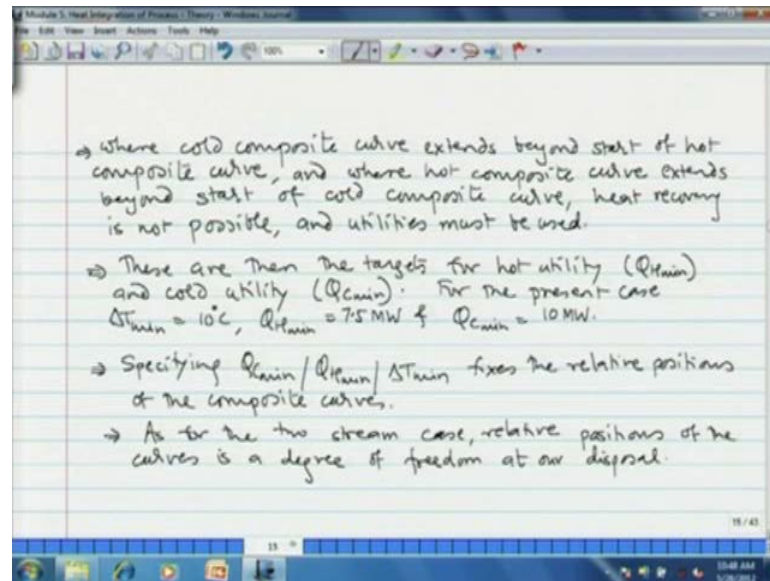 Module 5. Heat Integration of Process - Theory - Windows Journal
File Edit View Insert Actions Tools Help
100%
⇒ where cold composite curve extends beyond start of hot
composite curve, and where hot composite curve extends
beyond start of cold composite curve, heat recovery
is not possible, and utilities must be used.
⇒ These are then the targets for hot utility (QHmin)
and cold utility (QCmin). For the present case
ΔTmin = 10°C, QHmin = 7.5 MW & QCmin = 10 MW.
⇒ Specifying QCmin/QHmin/ΔTmin fixes the relative positions
of the composite curves.
→ As for the two stream case, relative positions of the
curves is a degree of freedom at our disposal.
15 / 43
15
10:48 AM